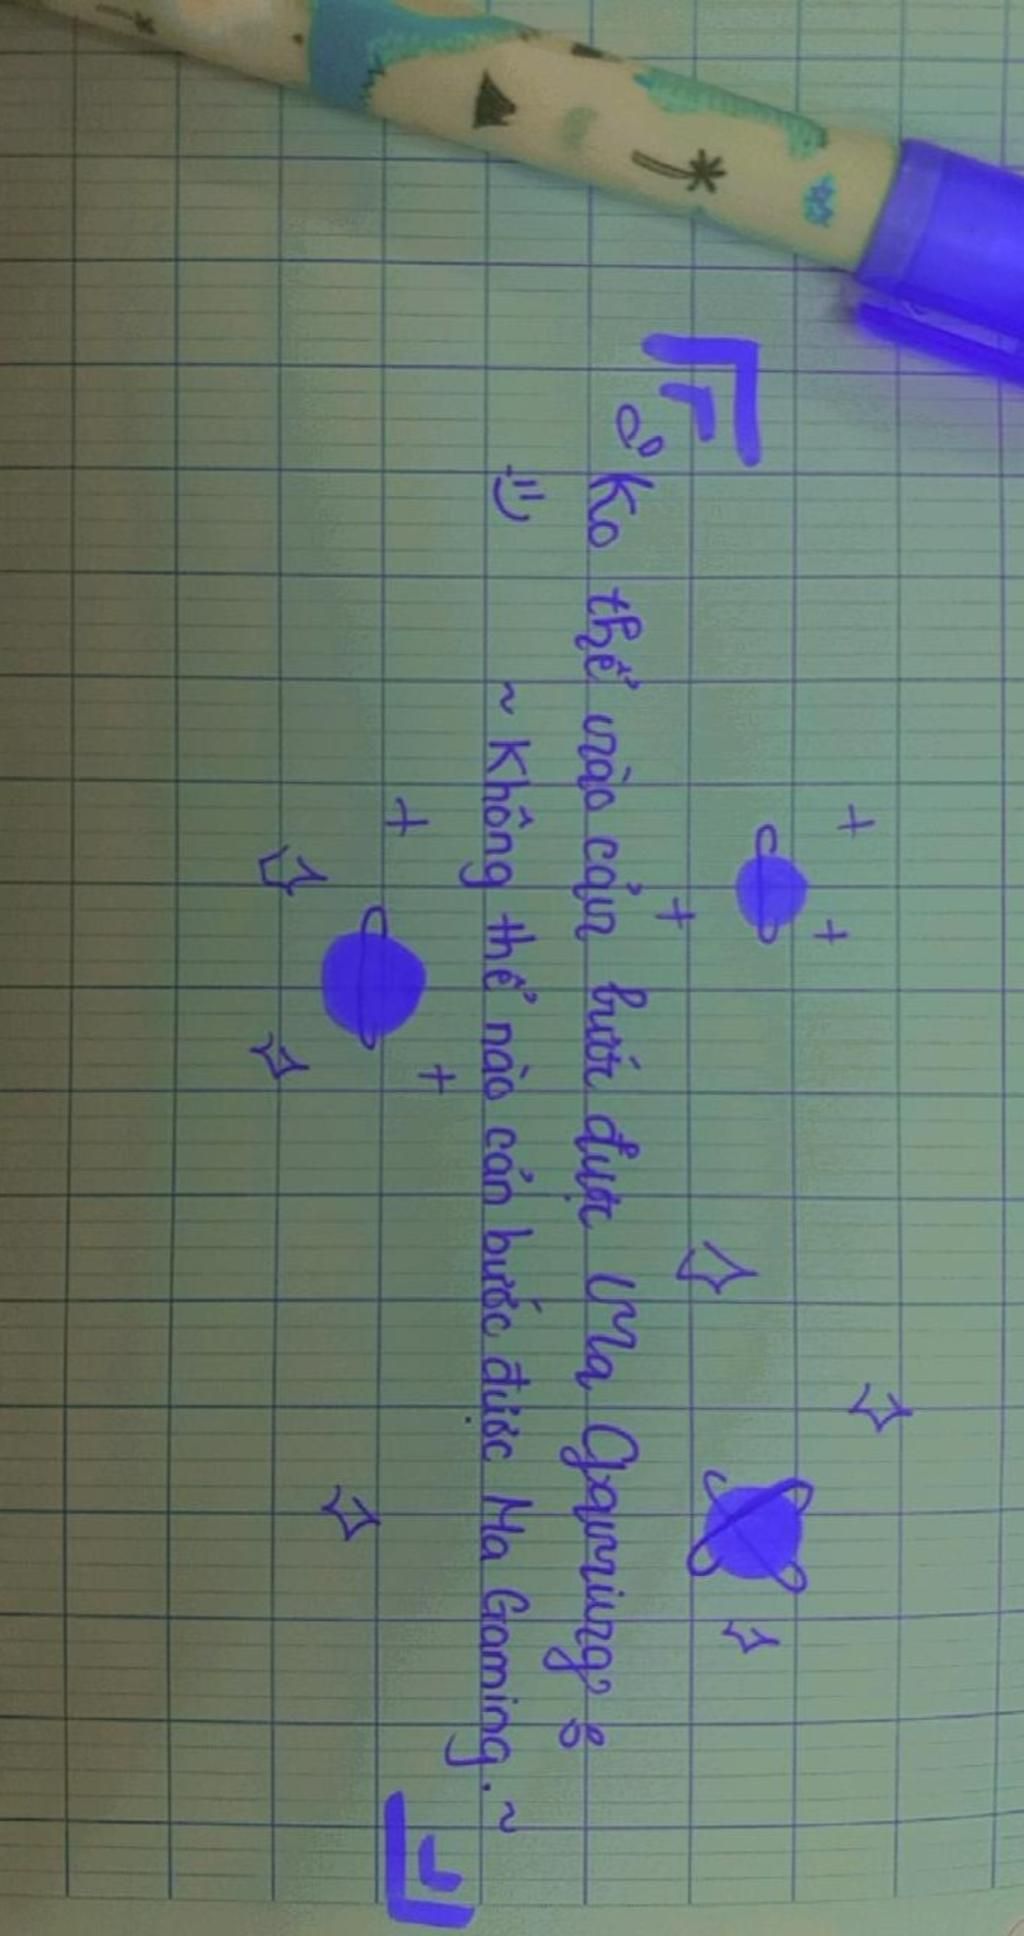 Ko thể nào cản bước được Ma Gaming
~ Không thể nào cản bước được Ma Gaming. ~